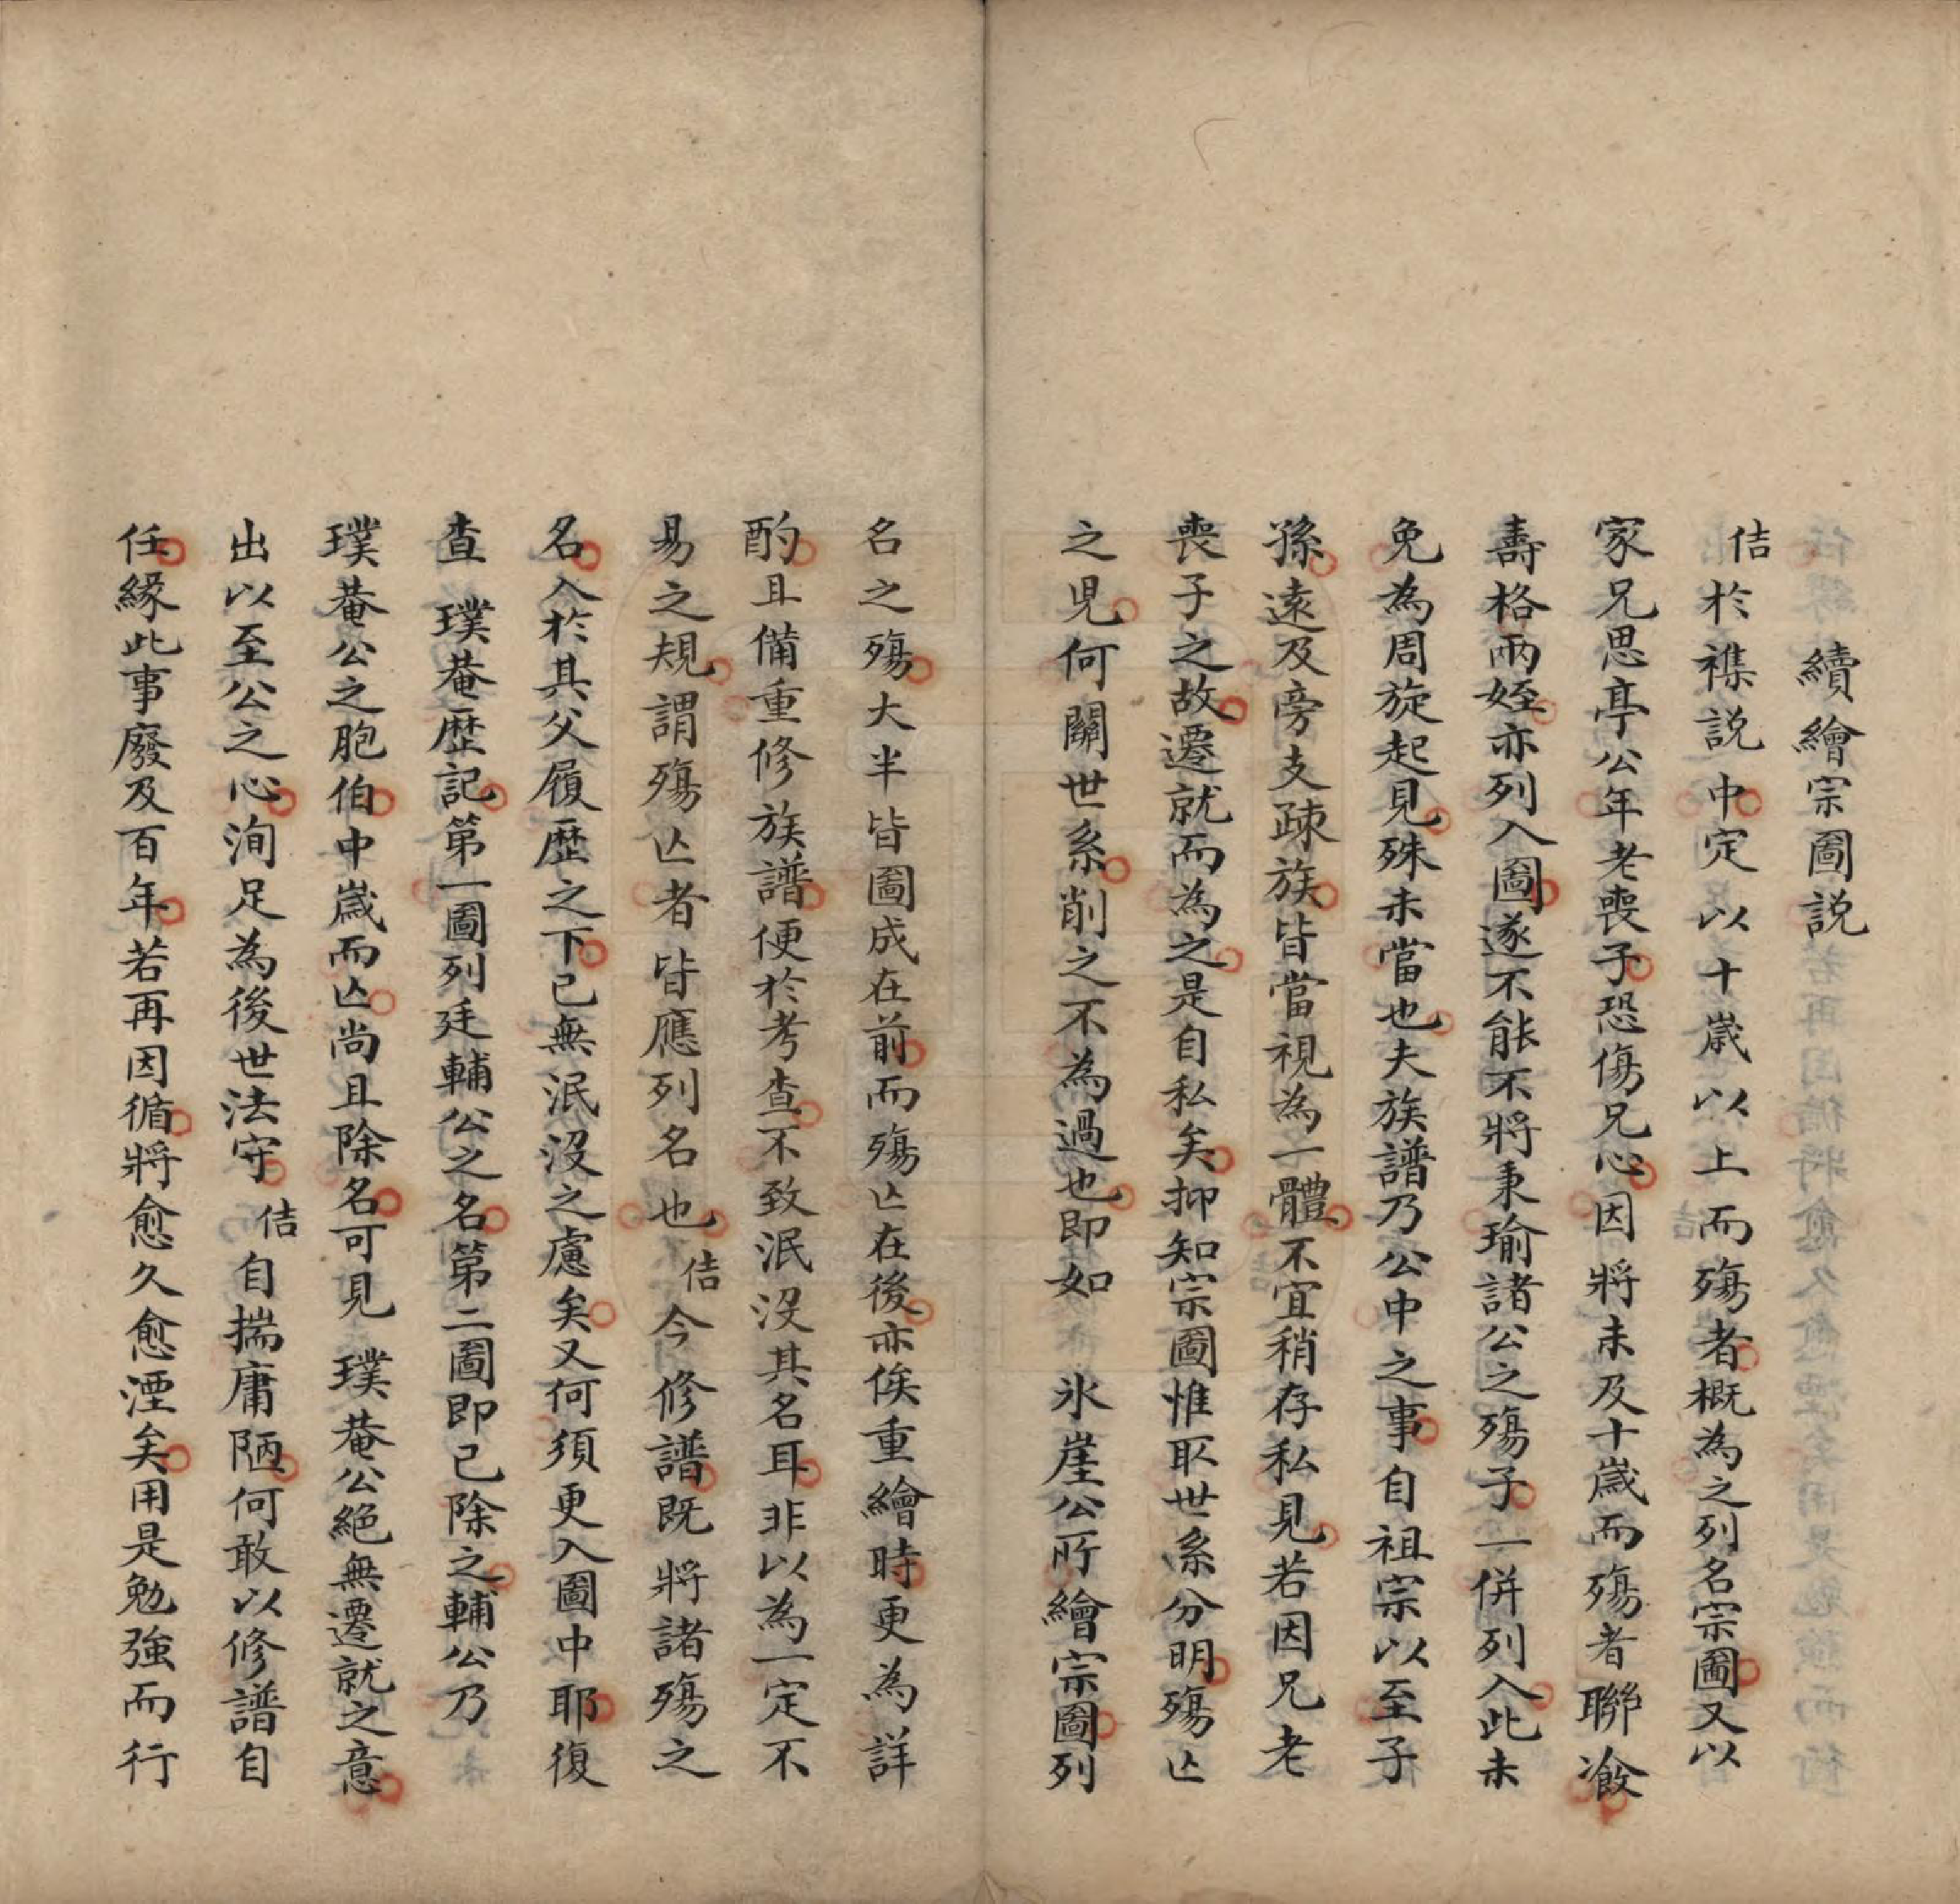 續繪宗圖説
佶於襍説中定以十歲以上而殤者概為之列名宗圖又以
家兄思亭公年老喪子恐傷兄心因將未及十歲而殤者聯飧
壽格兩姪亦列入圖遂不能不將秉瑜諸公之殤子一併列入此未
免為周旋起見殊未當也夫族譜乃公中之事自祖宗以至子
孫遠及旁支疎族皆當視為一體不宜稍存私見若因兄老
喪子之故遷就而為之是自私矣抑知宗圖惟取世系分明殤亾
之兒何關世系削之不為過也即如 氷崖公所繪宗圖列
名之殤大半皆圖成在前而殤亾在後亦俟重繪時更為詳
酌且備重修族譜便於考查不致泯沒其名耳非以為一定不
易之規謂殤亾者皆應列名也佶今修譜既將諸殤之
名入於其父履歷之下已無泯沒之慮矣又何須更入圖中耶復
查 璞菴歷記第一圖列廷輔公之名第二圖即已除之輔公乃
璞菴公之胞伯中歲而亾尚且除名可見 璞菴公絕無遷就之意
出以至公之心洵足為後世法守佶自揣庸陋何敢以修譜自
任緣此事廢及百年若再因循將愈久愈湮矣用是勉強而行